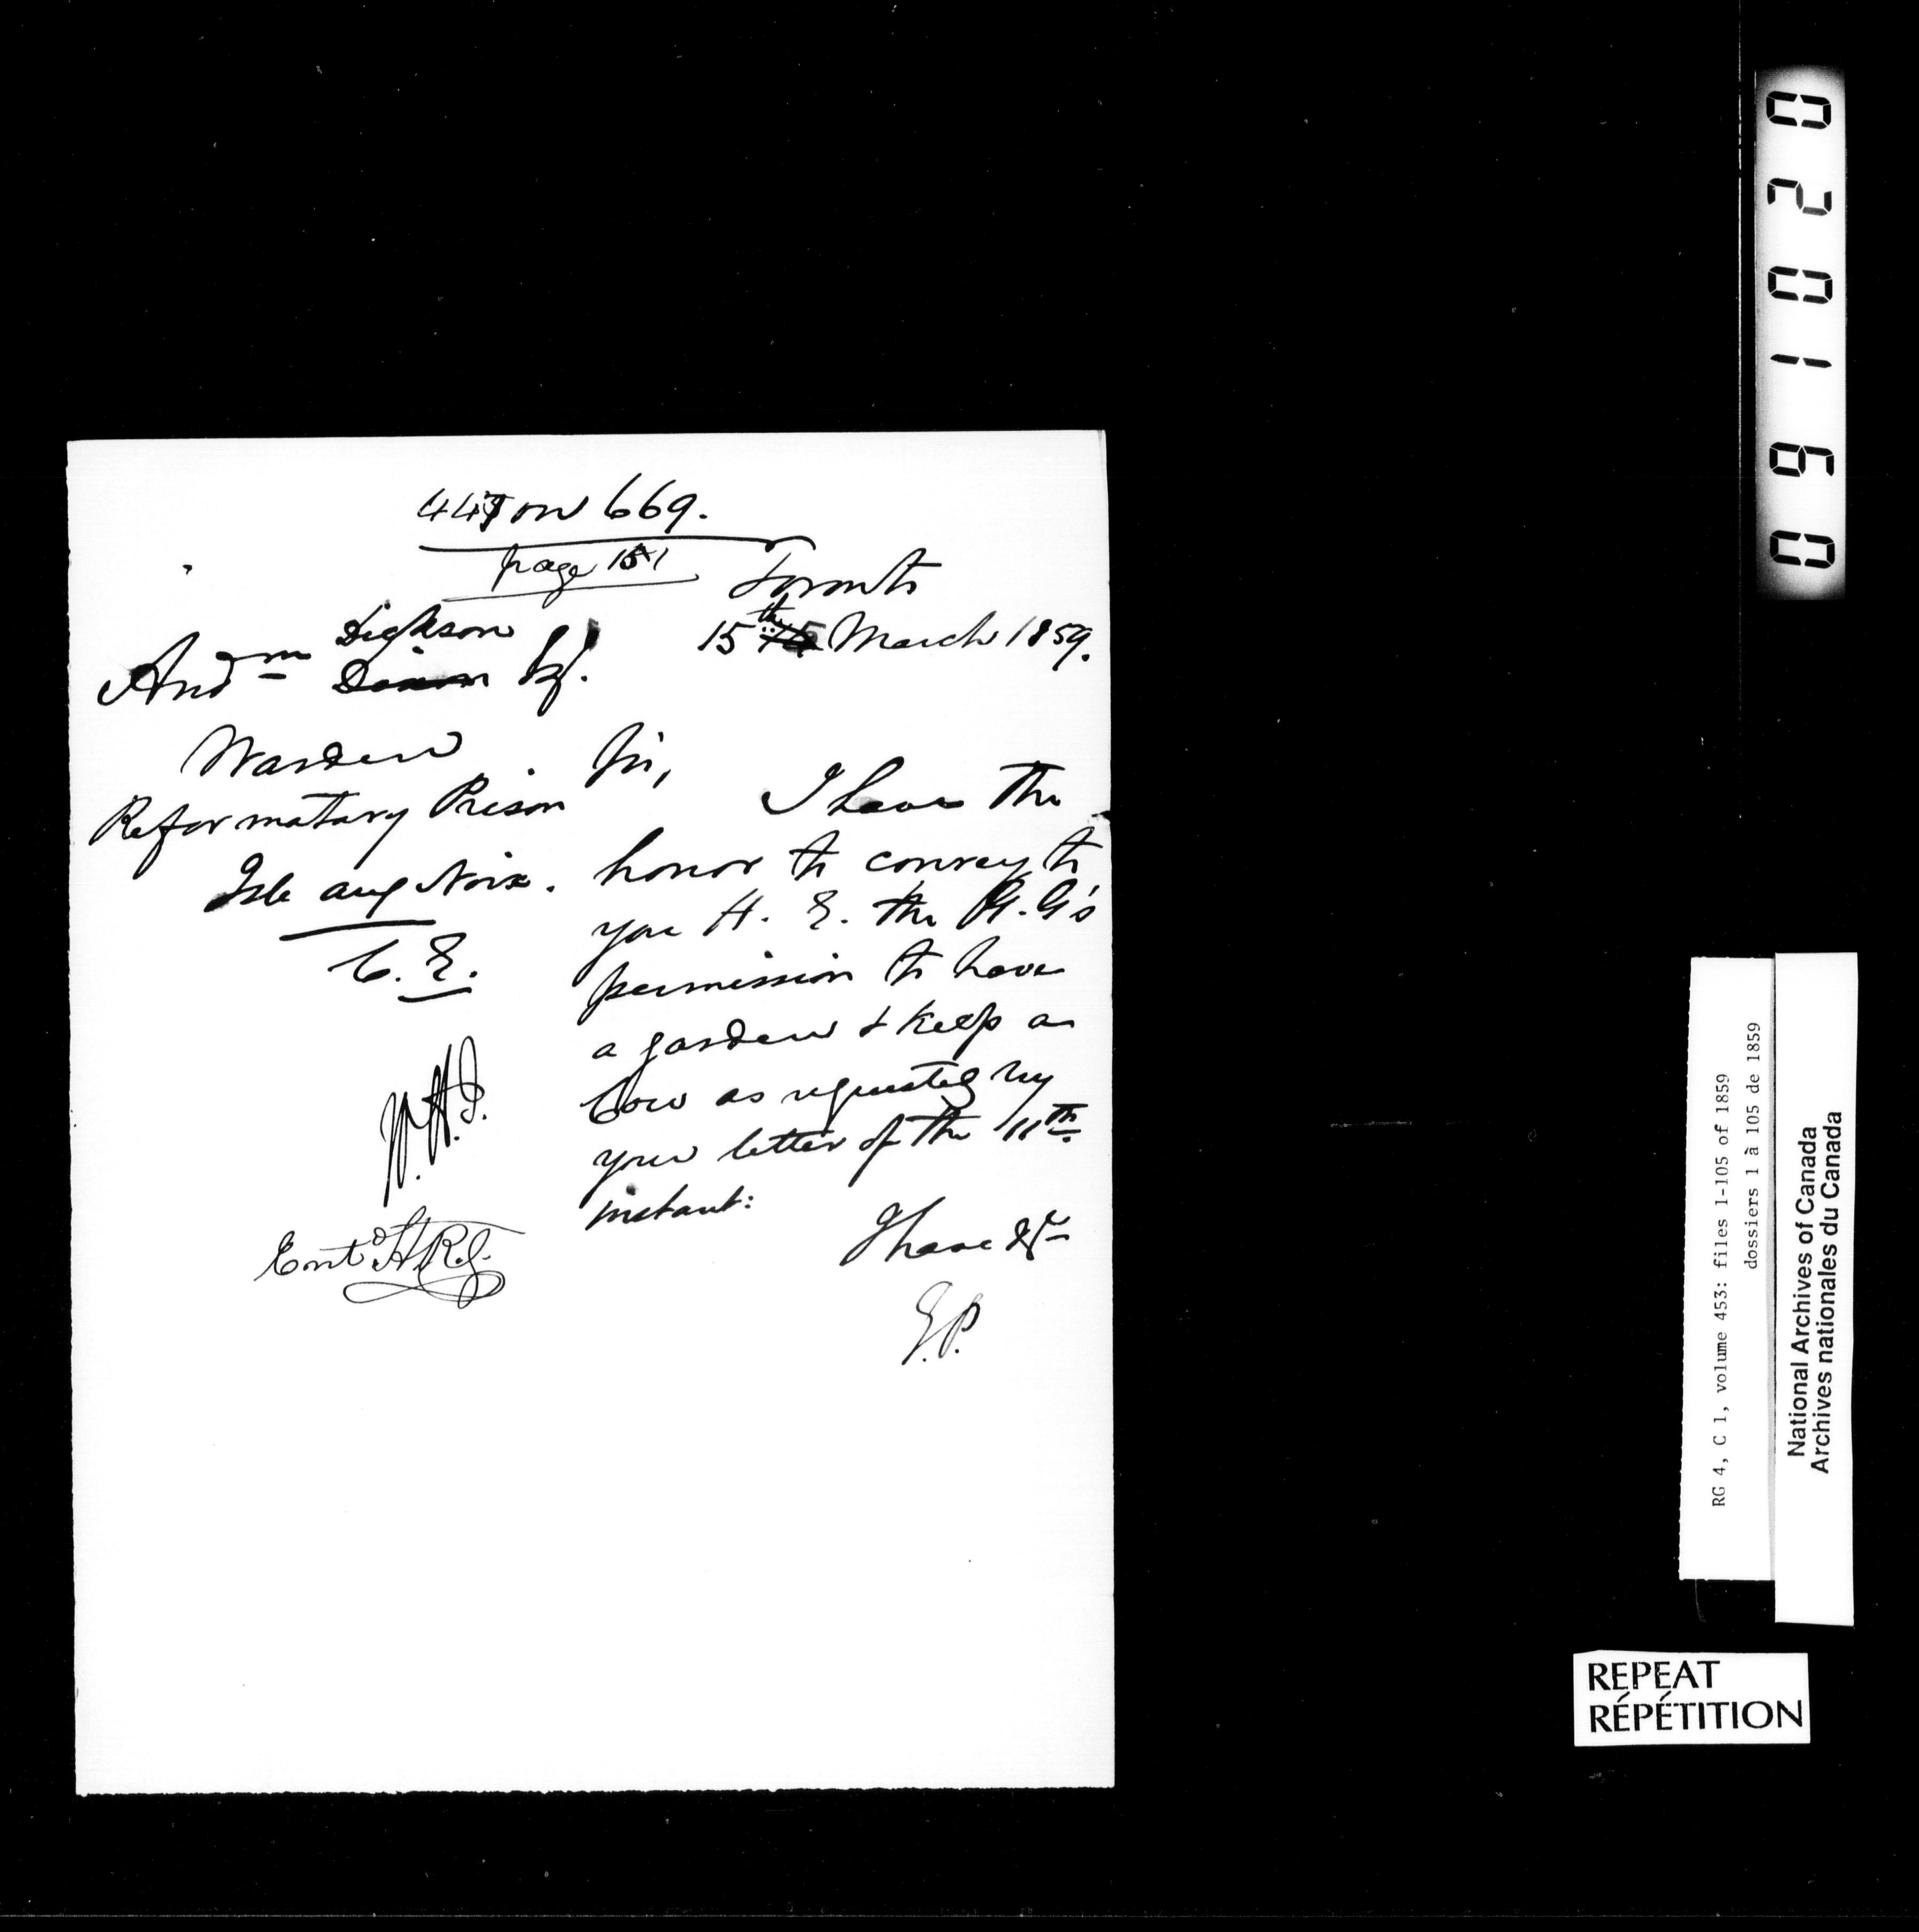 447 on 669.
page 151
Toronto
15th March 1859.
Andw Dickson Esq.
Warden
Reformatory Prison
Isle aux Noix.
C. E.
Sir,
I have the
honor to convey to
you H. E. the G. G's
permission to have
a garden & keep a
Cow as requested by
your letter of the 11th
instant:
I have &c
E.P.
W.H.J.
Entd H.R.J.
020160
RG 4, C 1, volume 453: files 11-105 of 1859
dossiers 1 à 105 de 1859
National Archives of Canada
Archives nationales du Canada
REPEAT
RÉPÉTITION